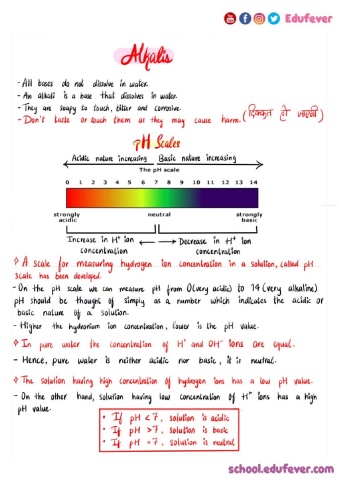 Edufever
Alkalis
- All bases do not dissolve in water.
- An alkali is a base that dissolves in water.
- They are soapy to touch, bitter and corrosive.
- Don't taste or touch them as they may cause harm. (दिक्कत हो जाएगी)
pH Scales
Acidic nature increasing Basic nature increasing
The pH scale
0 1 2 3 4 5 6 7 8 9 10 11 12 13 14
strongly acidic neutral strongly basic
Increase in H⁺ ion concentration ← → Decrease in H⁺ ion concentration
A scale for measuring hydrogen ion concentration in a solution, called pH
scale has been developed.
- On the pH scale we can measure pH from 0 (very acidic) to 14 (very alkaline)
pH should be thought of simply as a number which indicates the acidic or
basic nature of a solution.
- Higher the hydronium ion concentration, lower is the pH value.
In pure water the concentration of H⁺ and OH⁻ ions are equal.
- Hence, pure water is neither acidic nor basic, it is neutral.
The solution having high concentration of hydrogen ions has a low pH value.
- On the other hand, solution having low concentration of H⁺ ions has a high
pH value.
• If pH <7, solution is acidic
• If pH >7, solution is basic
• If pH =7, solution is neutral
school.edufever.com